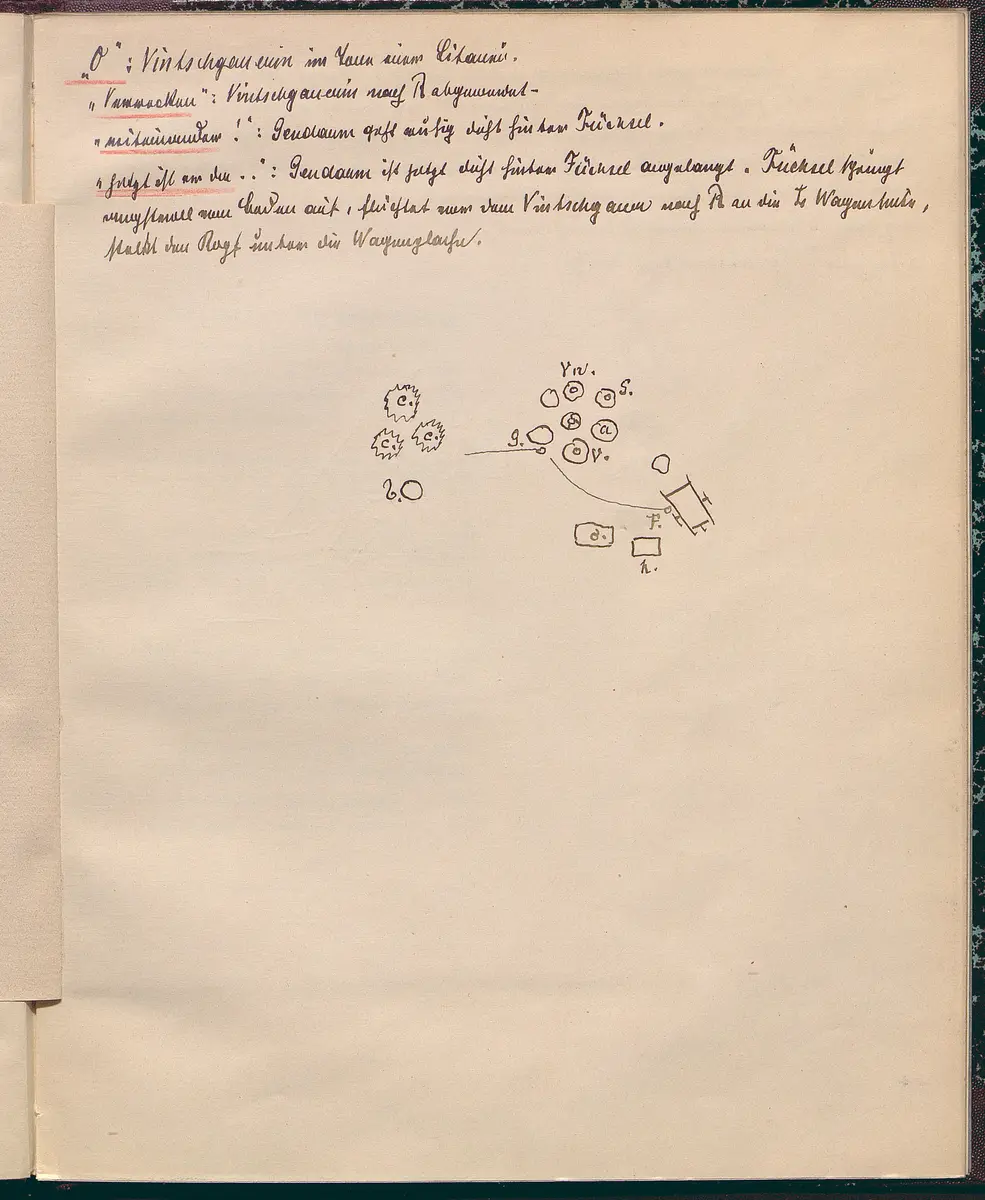 „O“: Vintschgauerin im Tone einer Litanei.
„Verrecken“: Vintschgauerin nach R abgewendet –
„miteinander!“: Gendarm geht ruhig dicht hinter Füchsel.
„jetzt ist er da ..“: Gendarm ist jetzt dicht hinter Füchsel angelangt. Füchsel springt
angstvoll vom Boden auf, flüchtet vor dem Vintschgauer nach R an die Ls Wagenseite,
steckt den Kopf unter die Wagenplache.
Vin.
c.
G.
c. c.
g.
a
V.
b.
F.
d.
h.